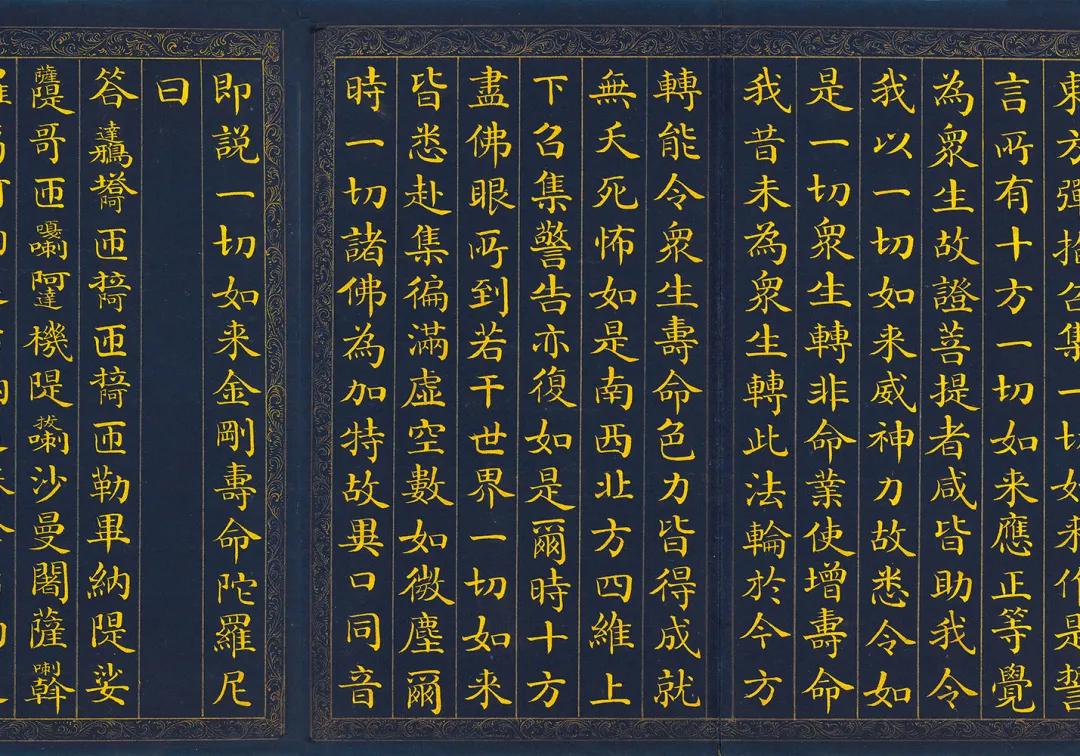 東方彈指召集一切如来作是誓
言所有十方一切如来應正等覺
為衆生故證菩提者咸皆助我令
我以一切如来威神力故悉令如
是一切衆生轉非命業使增壽命
我昔未為衆生轉此法輪於今方
轉能令衆生壽命色力皆得成就
無夭死怖如是南西北方四維上
下召集警告亦復如是爾時十方
盡佛眼所到若干世界一切如来
皆悉赴集徧滿虛空數如微塵爾
時一切諸佛為加持故異口同音
即説一切如来金剛壽命陀羅尼
曰
答達匝匝匝勒畢納隄娑
薩隄哥匝嘎喇阿達機隄拔喇沙曼闍薩喇斡